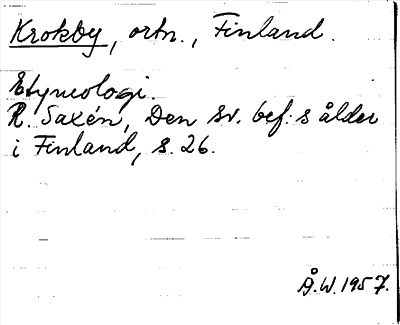 Krokby, ortn., Finland.
Etymologi.
R. Saxén, Den sv. bef:s ålder
i Finland, s. 26.
Å.W. 1957.